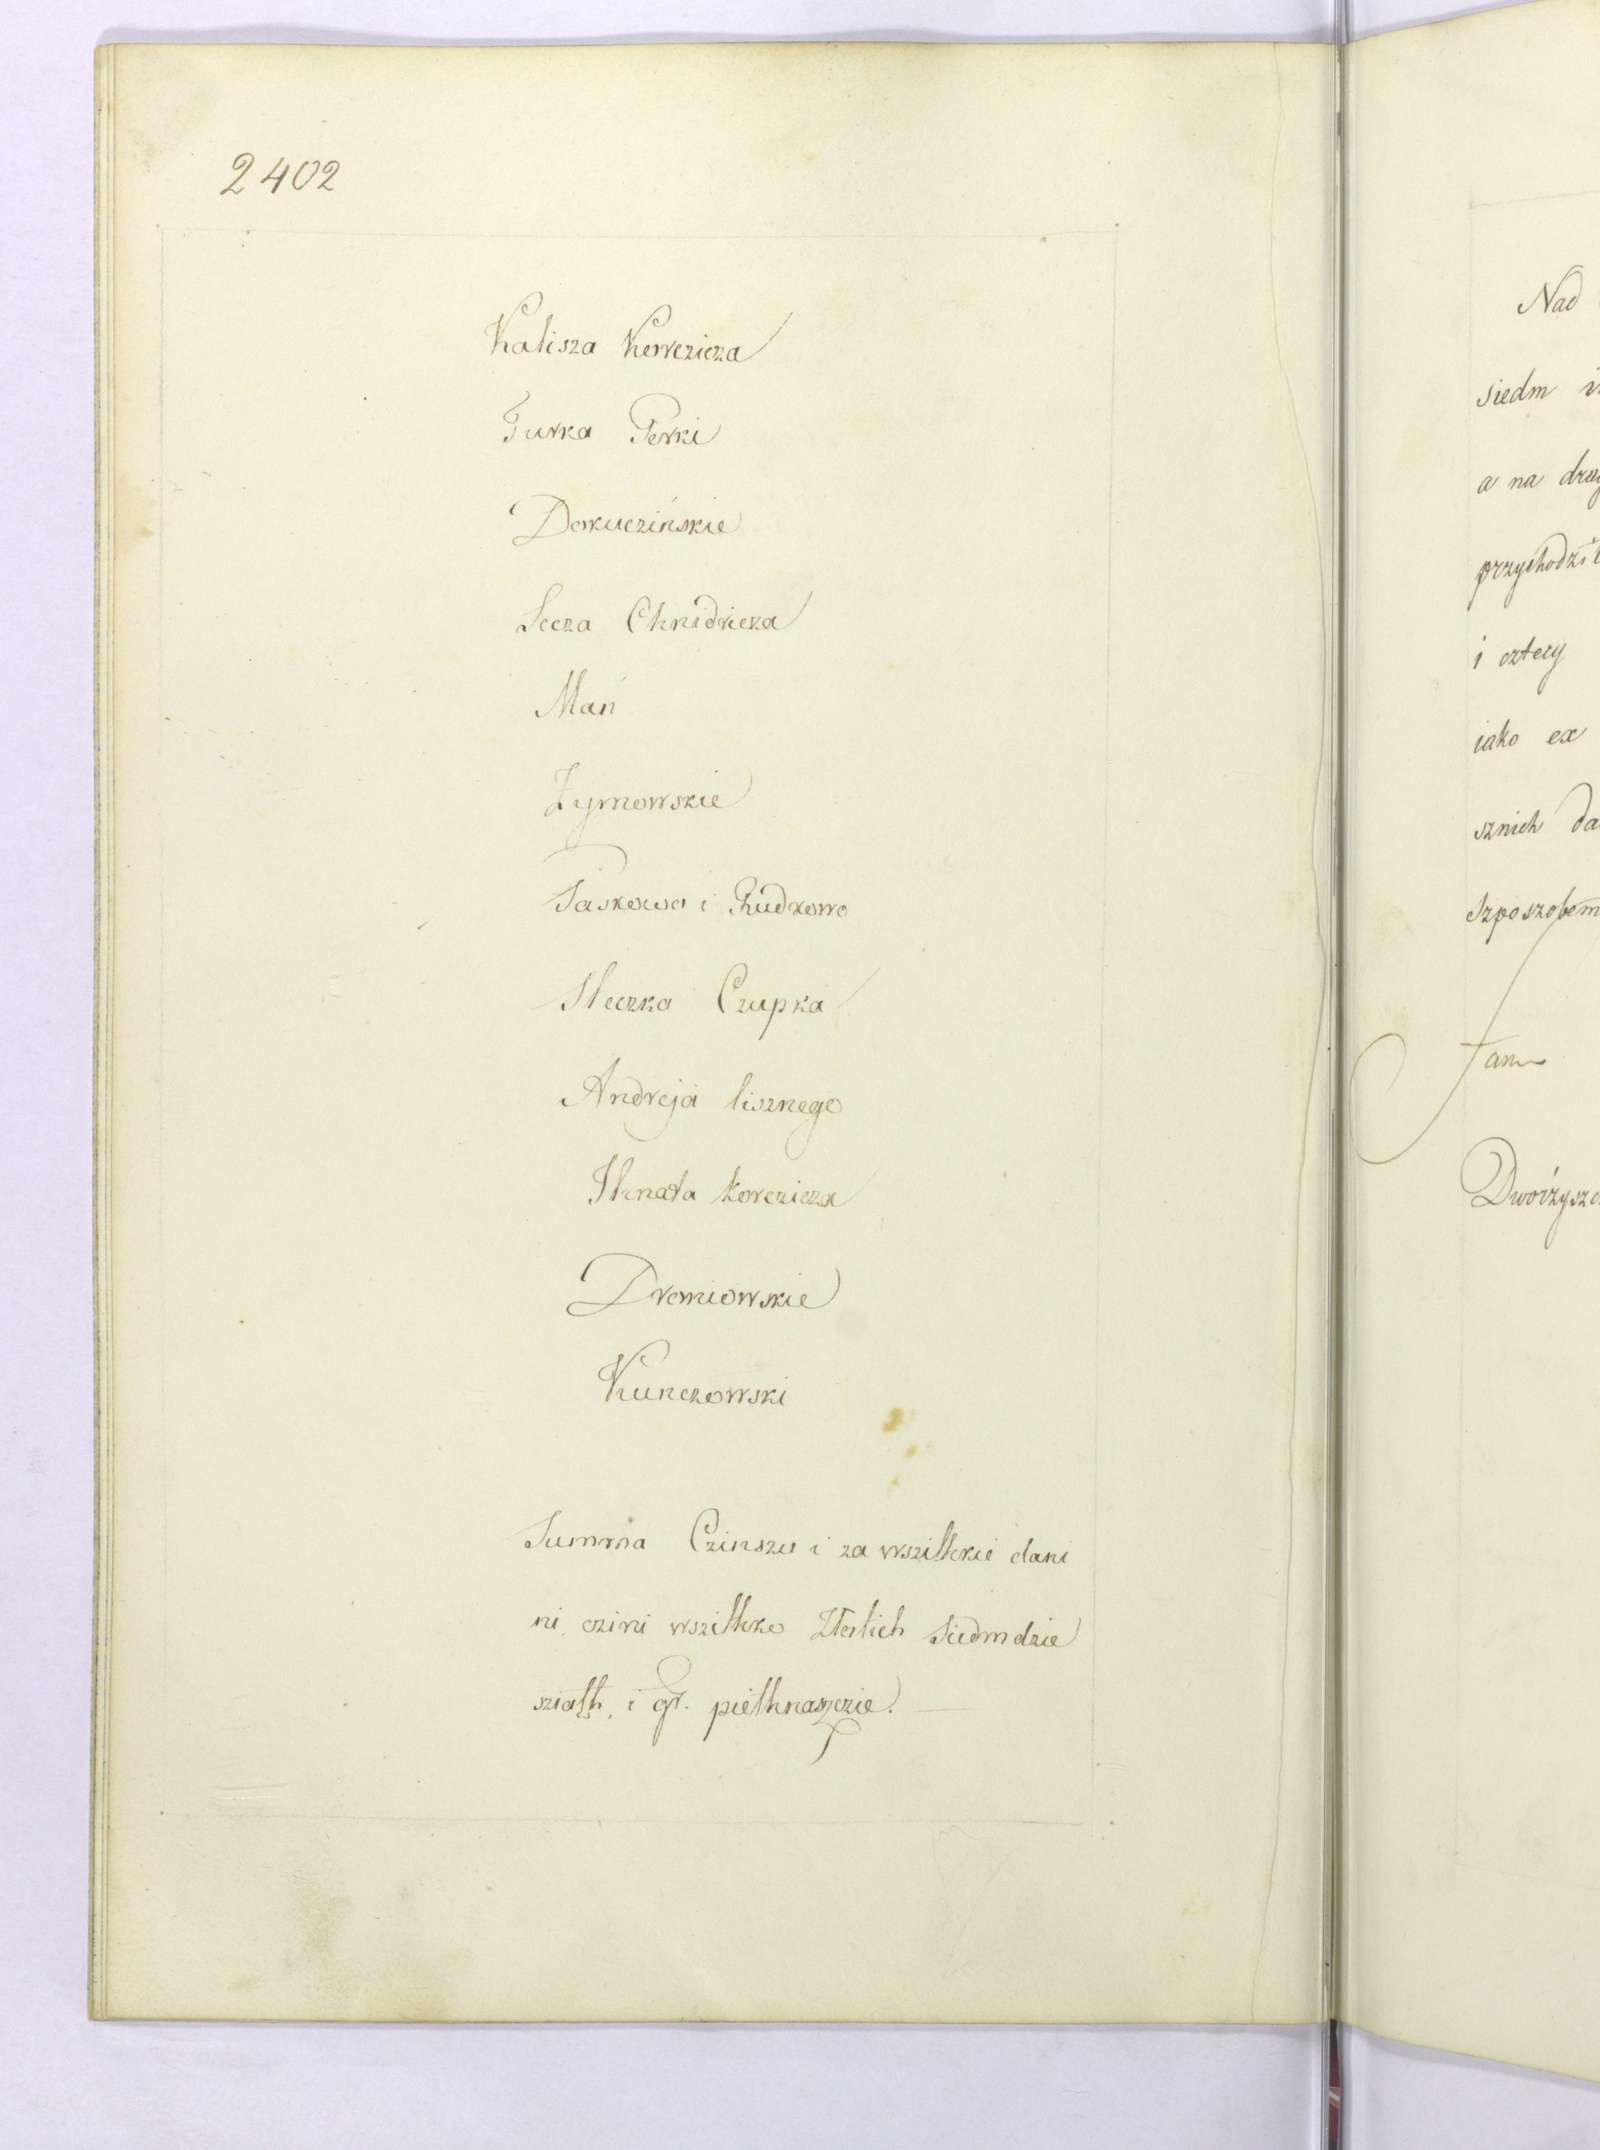 2402
Kalisza Kewczicza
Turka Perki
Dokuczińskie
Secza Chnidricza
Mań
Zymowskie
Paskowo i Rudkowo
Steczka Czupka
Andreja lisznego
Ihnata korczicza
Dremiowskie
Kunczowski
Summa Czinszu i za wszitkie dani
ni czini wszitkko Złotich siedmdzie
sziąth, i gr. piethnaszczie.
Nad
siedm
a na drug
przychodzi
i cztery
iako ex
sznich da
szposzobem
tam
Dworzysz